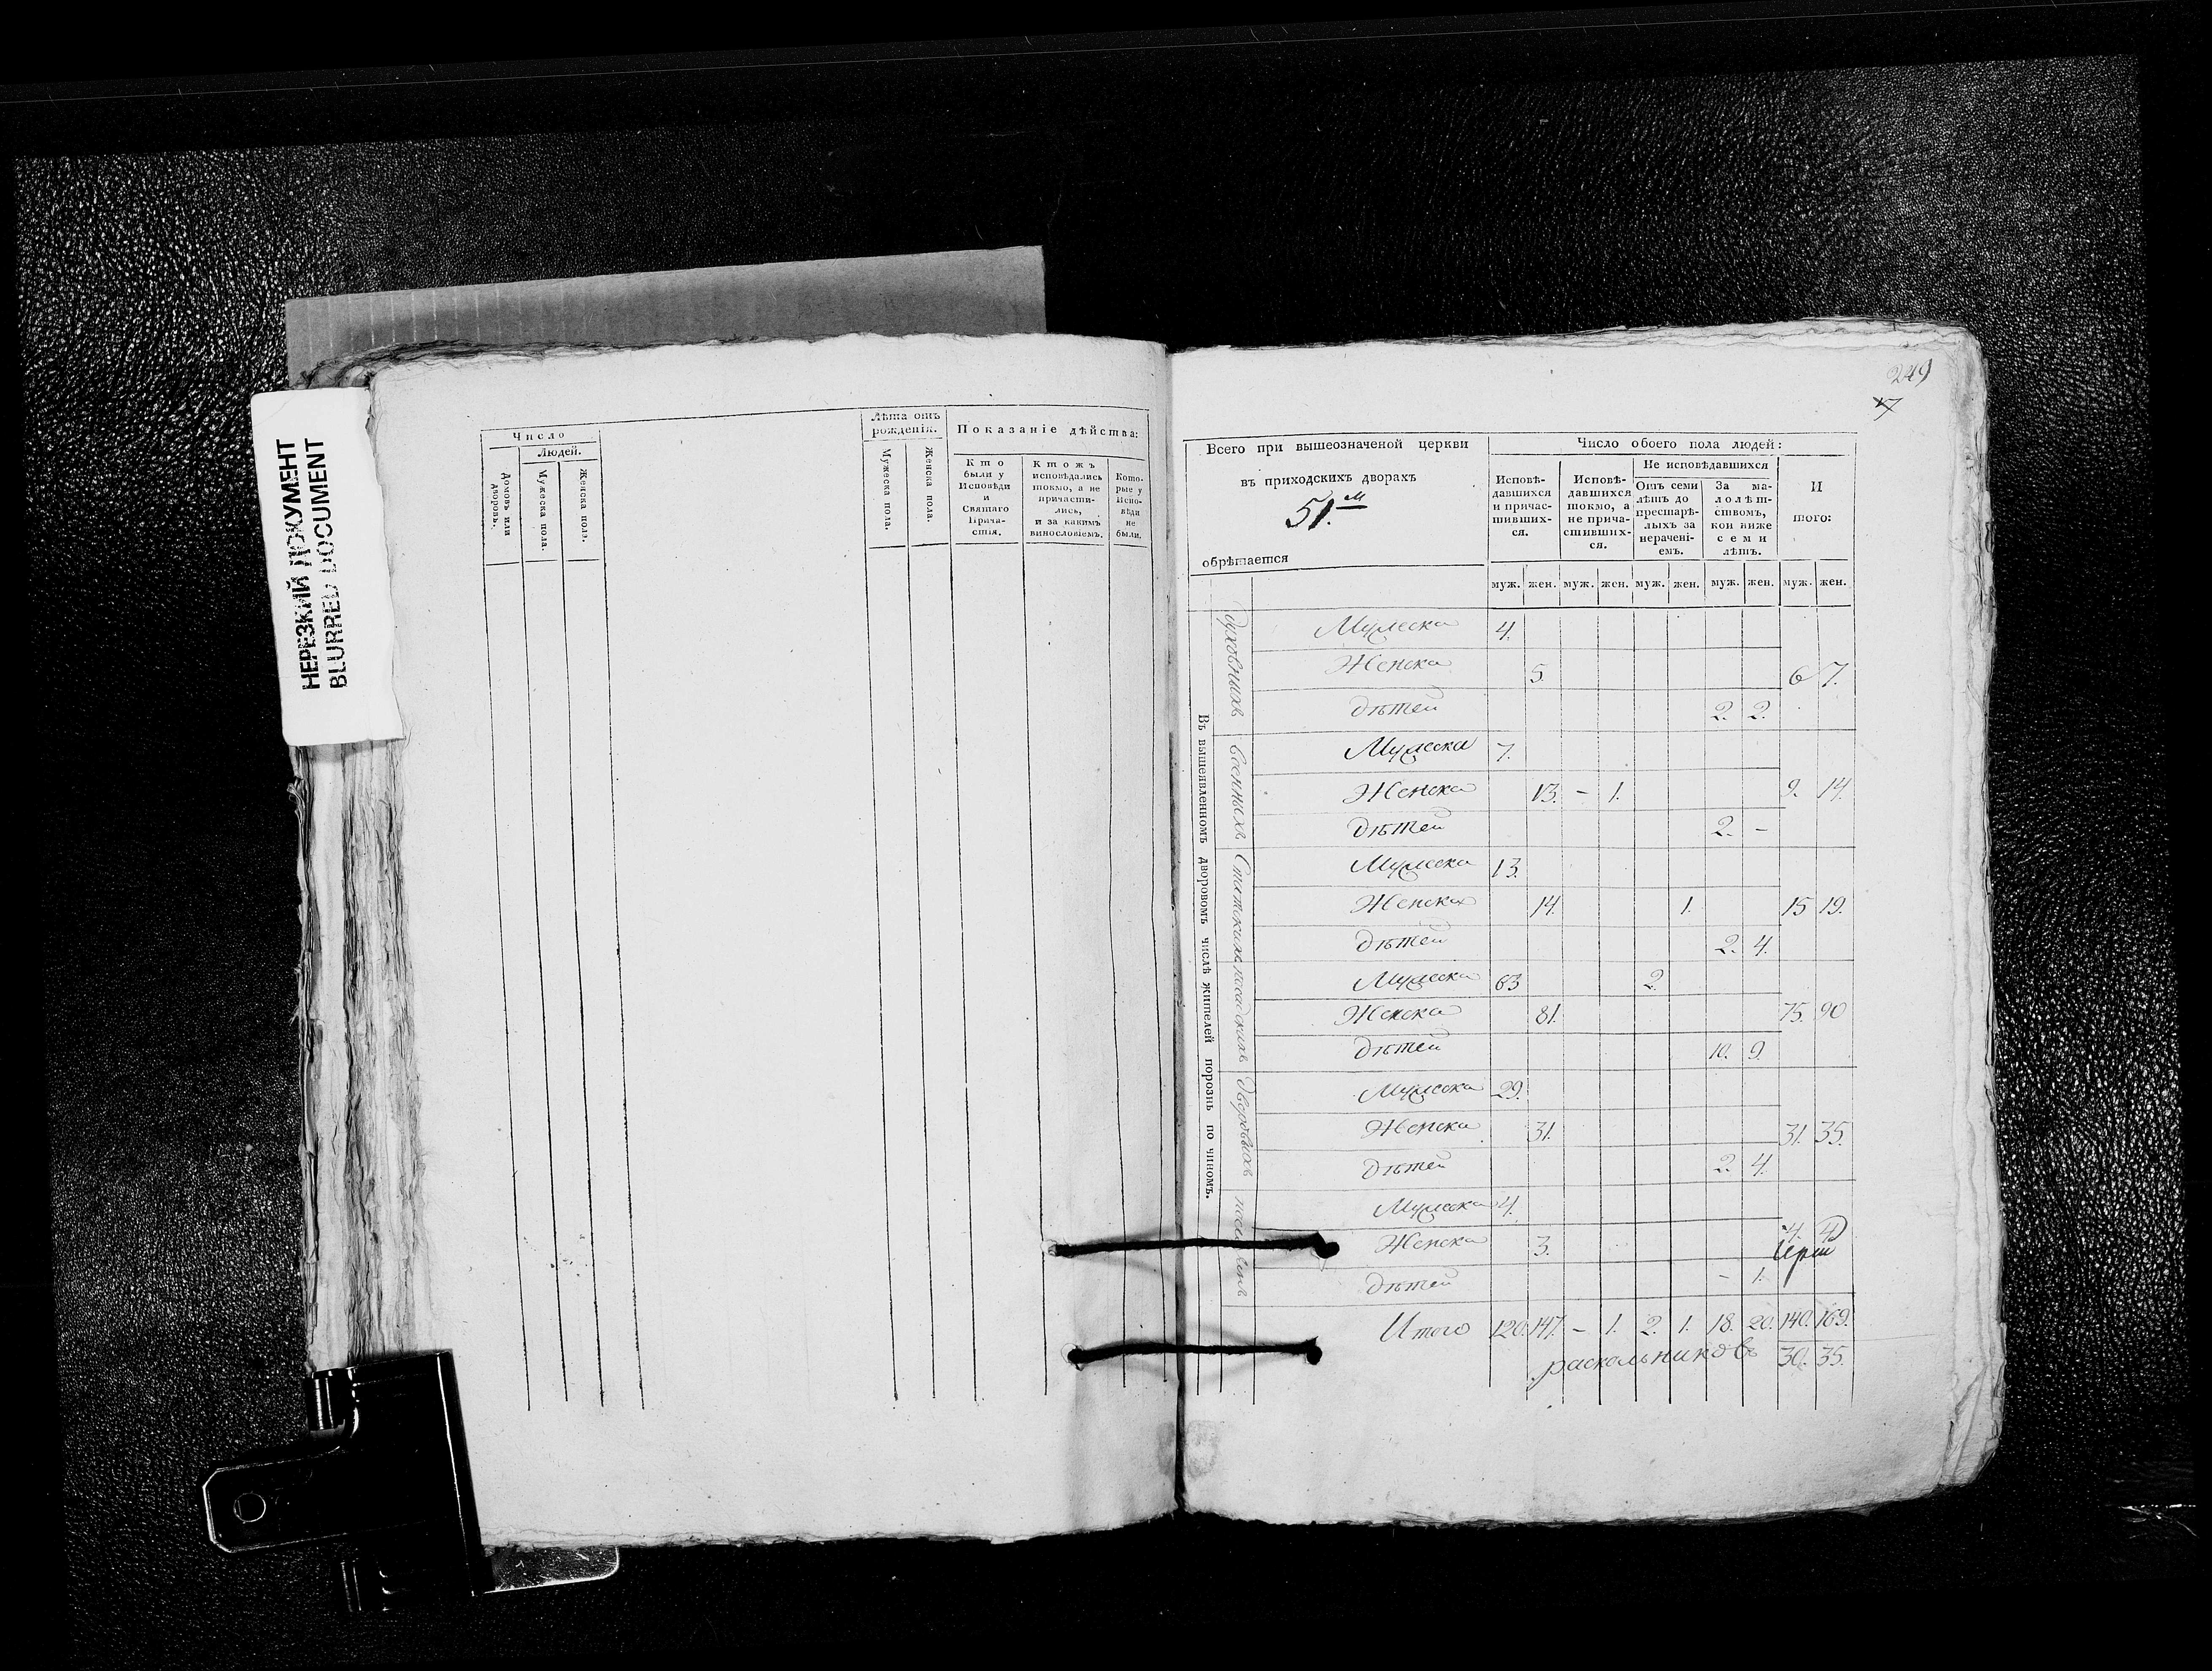 НЕРЕЗКИЙ ДОКУМЕНТ
BLURRED DOCUMENT
Число
Людей.
Домовъ или дворовъ.
Мужеска пола.
Женска пола.
Лѣта отъ рожденія.
Мужеска пола.
Женска пола.
Показаніе дѣйства:
Кто были у Исповѣди и Святаго Прича- стія.
Ктожъ исповѣдались токмо, а не причасти- лись, и за какимъ винословіемъ.
Кото- рые у Испо- вѣди не были.
249
17
Всего при вышеозначеной церкви
въ приходскихъ дворахъ
51.м
обрѣтается
Число обоего пола людей:
Исповѣ- давшихся и причас- тивших- ся.
Исповѣ- давшихся токмо, а не прича- стивших- ся.
Не исповѣдавшихся
Отъ семи лѣтъ до престарѣ- лыхъ за нерачені- емъ.
За ма- лолѣт- ствомъ, кои ниже семи лѣтъ.
И того:
муж. жен. муж. жен. муж. жен. муж. жен. муж. жен.
Въ вышеявленномъ дворовомъ числѣ жителей порознь по чиномъ.
духовныхъ
Мужеска 4.
Женска 5. 6 7.
дѣтей 2. 2.
военныхъ
Мужеска 7.
Женска 13. - 1. 9. 14.
дѣтей 2. -
Статскихъ
Мужеска 13.
Женска 14. 1. 15 19.
дѣтей 2. 4.
посадскихъ
Мужеска 63 2.
Женска 81. 75. 90
дѣтей 10. 9.
дворовыхъ
Мужеска 29.
Женска 31. 31. 35.
дѣтей 2. 4.
Мужеска 4.
Женска 3. 4. 4
дѣтей - 1.
Итого 120. 147. - 1. 2. 1. 18. 20. 140. 169.
раскольниковъ 30. 35.